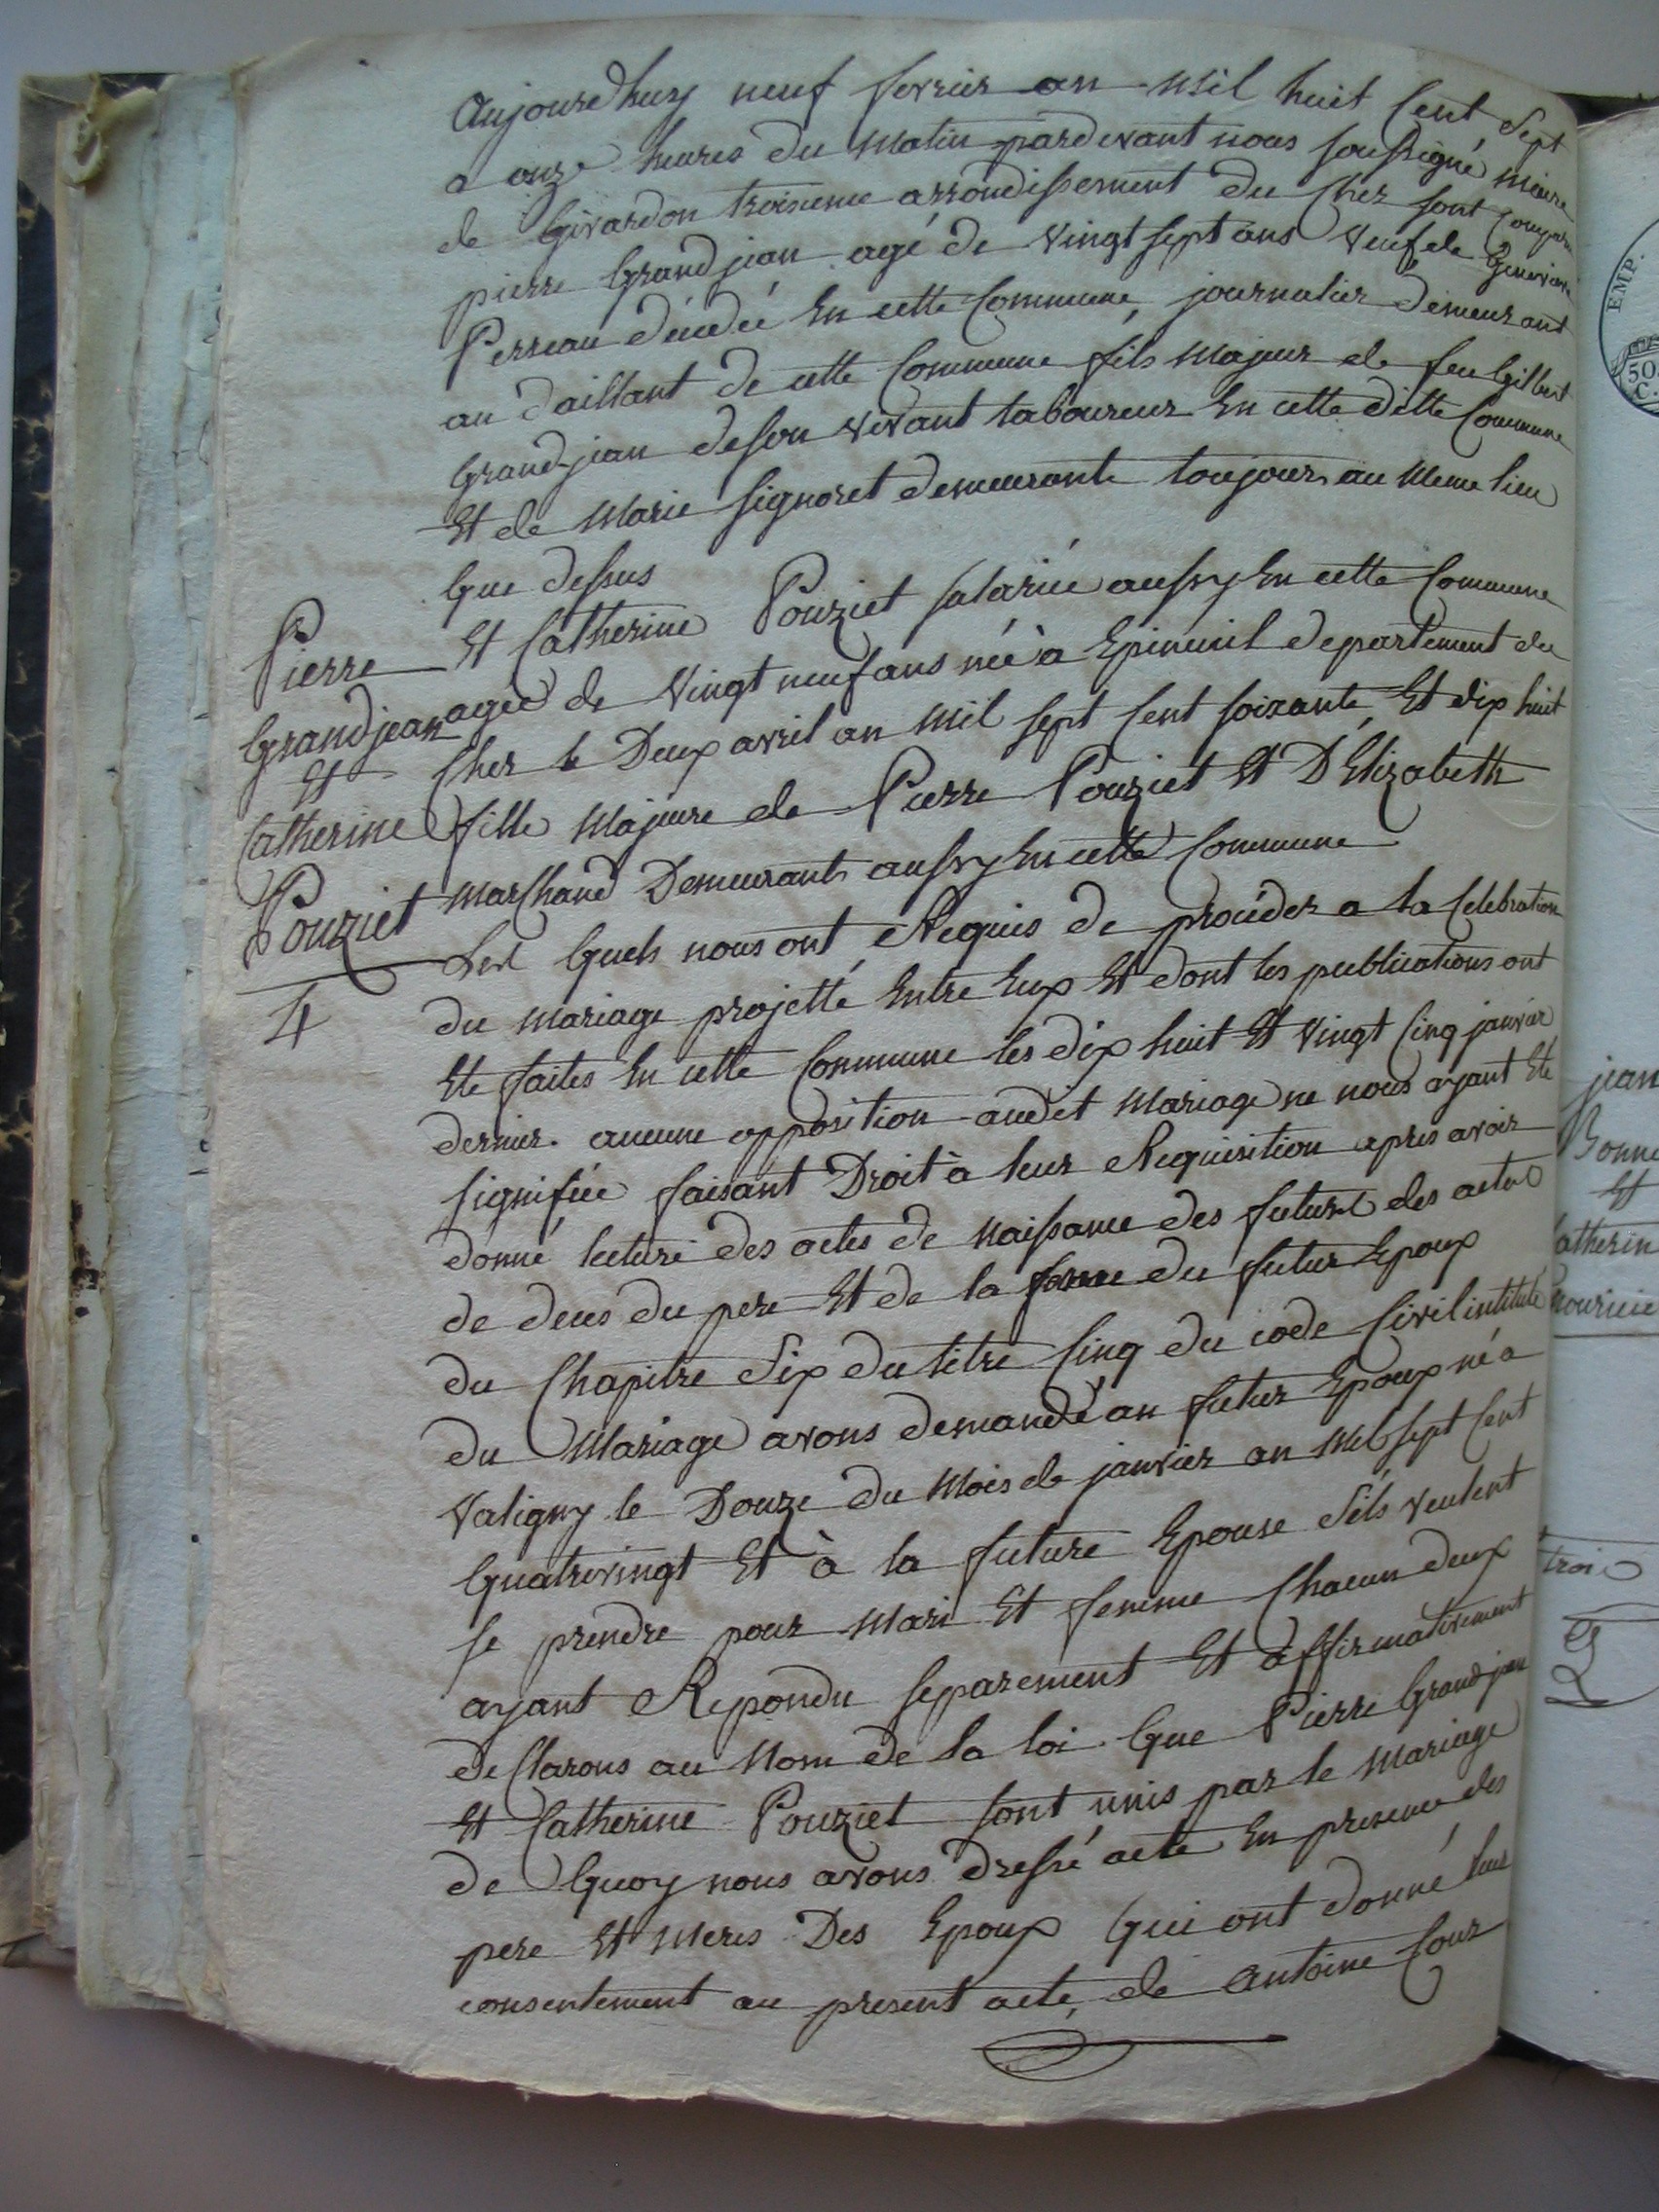 Aujourdhuy neuf fevrier an mil huit Cent Sept
a onze heures du Matin pardevant nous soussigné Maire
de Givardon troisieme arrondissement du Cher sont
pierre Grandjean agé de Vingt sept ans Veuf de Genevieve
Perreau décédée En cette Commune, journalier demeurant
au daillant de cette Commune fils Majeur de feu Gilbert
Grandjean de son vivant laboureur En cette ditte Commune
Et de Marie Signoret demeurante toujours au Meme lieu
Que dessus
Et Catherine Pouziet salariée aussy En cette Commune
agée de Vingt neuf ans née à Epineuil departement du
Cher le Deux avril an Mil Sept Cent soixante Et dix huit
fille Majeure de Pierre Pouziet Et D'Elizabeth
Marchand Demeurants aussy En cette Commune
Pierre
Grandjean
Et
Catherine
Pouziet
4
Les Quels nous ont Requis de procéder a la Celebration
du Mariage projetté Entre Eux Et dont les publications ont
Ete faites En cette Commune les dix huit Et Vingt Cinq janvier
dernier. aucune opposition audit Mariage ne nous ayant Ete
signifiée faisant Droit à leur Requisition apres avoir
donné lecture des actes de Naissance des futurs des actes
de deces du pere Et de la du futur Epoux
du Chapitre Six du titre Cinq du code Civil intitulé
du Mariage avons demandé au futur Epoux né a
Valigny le Douze du Mois de janvier an Mil sept Cent
Quatrevingt Et à la future Epouse S'ils veulent
se prendre pour Mari Et femme Chacun deux
ayant Repondu separement Et affirmativement
deClarons au Nom de la loi Que Pierre Grandjean
Et Catherine Pouziet sont unis par le Mariage
de Quoy nous avons dressé acte En presence des
pere Et Meres Des Epoux Qui ont donné leur
consentement au present acte, de antoine
EMP.
50
C.
jean
Bonne
Et
atherin
trois